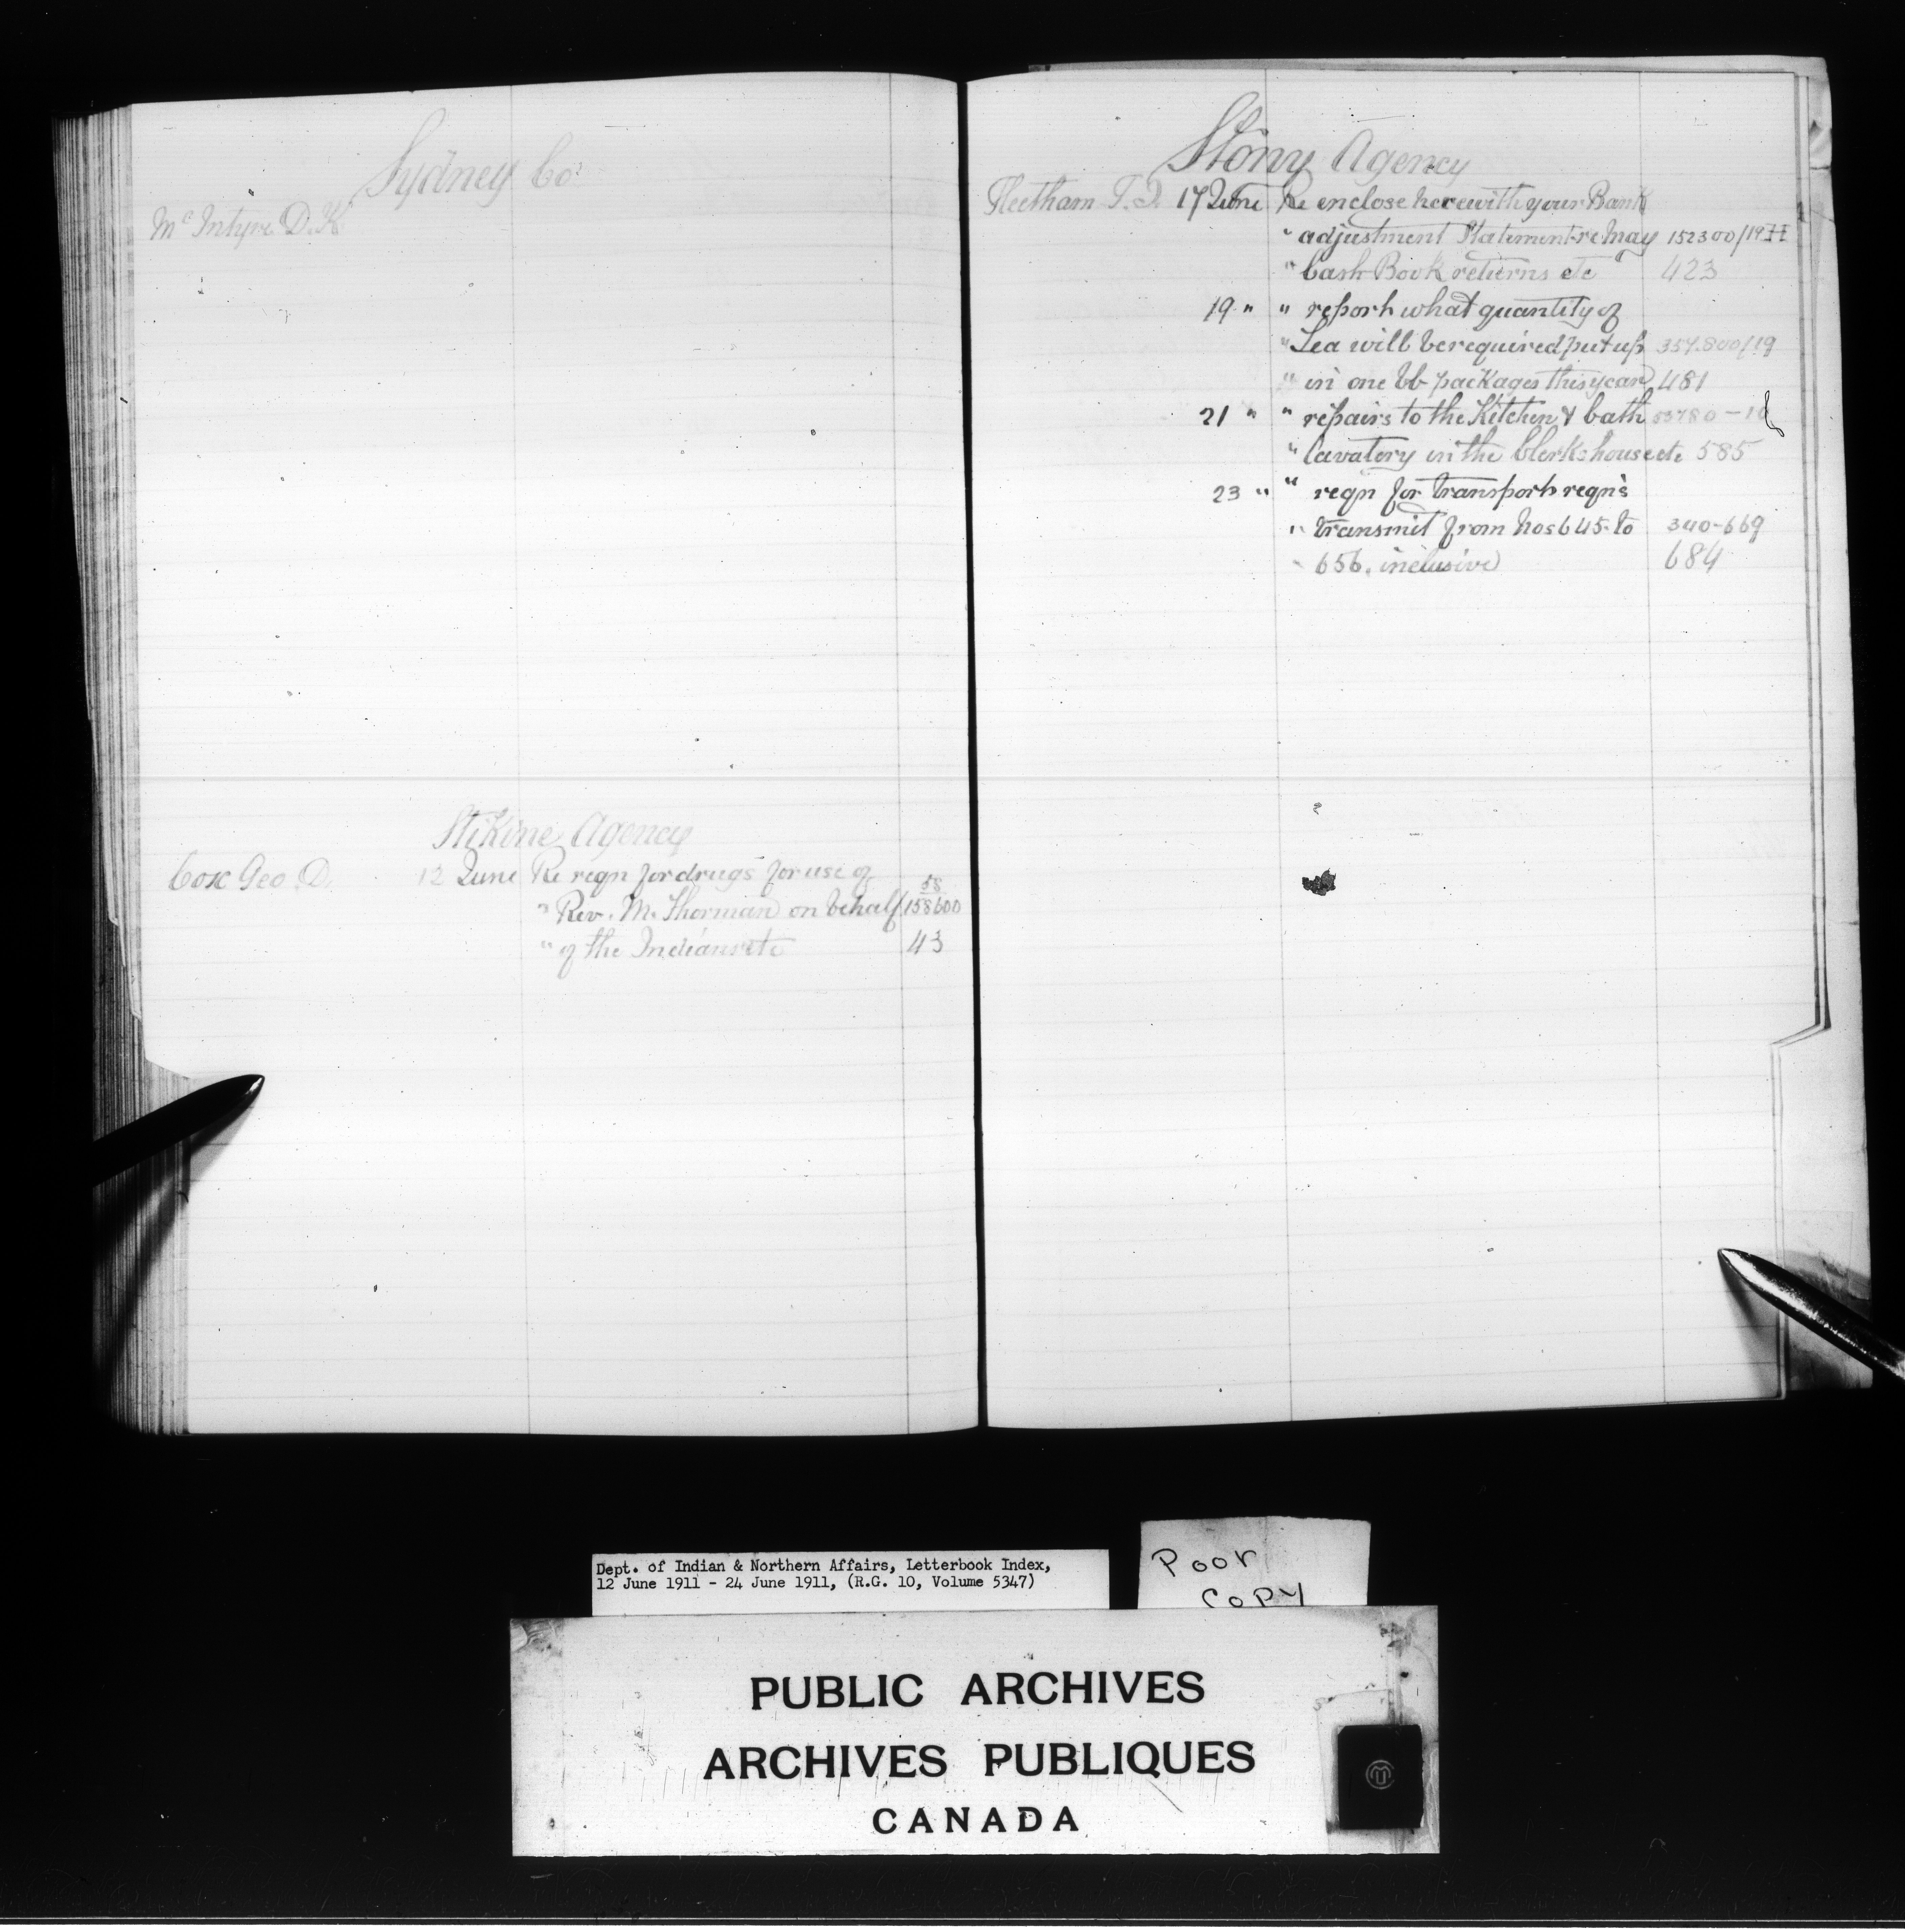 Sydney Co.
McIntyre D. K.
Stikine Agency
Cox Geo. D. 12 June Re reqn for drugs for use of
" Rev. M. Thorman on behalf 58/158600
" of the Indians etc 43
Stony Agency
Fleetham T. J. 17 June Re enclose herewith your Bank
" adjustment Statement re May 152300/19
" Cash Book returns etc 423
19 " " report what quantity of
" Tea will be required put up 357.800/19
" in one lb packages this year 481
21 " " repairs to the Kitchen & bath 53780-10
" lavatory in the Clerks house etc 585
23 " " reqn for transport reqn's
" transmit from nos 645 to 340-669
" 656. inclusive 684
Dept. of Indian & Northern Affairs, Letterbook Index,
12 June 1911 - 24 June 1911, (R.G. 10, Volume 5347)
Poor
Copy
PUBLIC ARCHIVES
ARCHIVES PUBLIQUES
CANADA